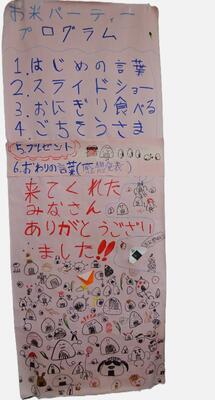 お米パーティー
プログラム
1.はじめの言葉
2.スライドショー
3.おにぎり食べる
4.ごちそうさま
5.プレゼント
6.おわりの言葉(感想発表)
来てくれた
みなさん
ありがとうござい
ました!!